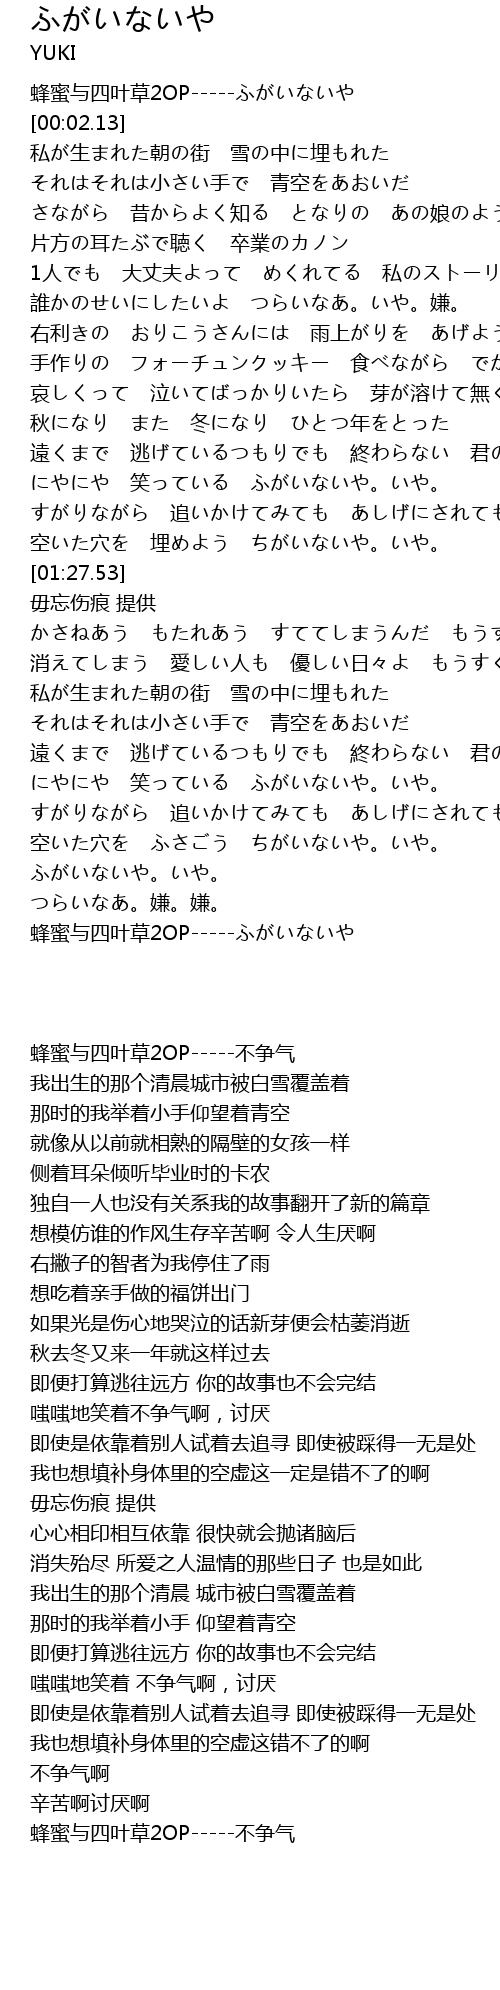 ふがいないや
YUKI
蜂蜜与四叶草2OP-----ふがいないや
[00:02.13]
私が生まれた朝の街　雪の中に埋もれた
それはそれは小さい手で　青空をあおいだ
さながら　昔からよく知る　となりの　あの娘のよう
片方の耳たぶで聴く　卒業のカノン
1人でも　大丈夫よって　めくれてる　私のストーリ
誰かのせいにしたいよ　つらいなあ。いや。嫌。
右利きの　おりこうさんには　雨上がりを　あげよう
手作りの　フォーチュンクッキー　食べながら　でか
哀しくって　泣いてばっかりいたら　芽が溶けて無く
秋になり　また　冬になり　ひとつ年をとった
遠くまで　逃げているつもりでも　終わらない　君の
にやにや　笑っている　ふがいないや。いや。
すがりながら　追いかけてみても　あしげにされても
空いた穴を　埋めよう　ちがいないや。いや。
[01:27.53]
毋忘伤痕 提供
かさねあう　もたれあう　すててしまうんだ　もうす
消えてしまう　愛しい人も　優しい日々よ　もうすぐ
私が生まれた朝の街　雪の中に埋もれた
それはそれは小さい手で　青空をあおいだ
遠くまで　逃げているつもりでも　終わらない　君の
にやにや　笑っている　ふがいないや。いや。
すがりながら　追いかけてみても　あしげにされても
空いた穴を　ふさごう　ちがいないや。いや。
ふがいないや。いや。
つらいなあ。嫌。嫌。
蜂蜜与四叶草2OP-----ふがいないや
蜂蜜与四叶草2OP-----不争气
我出生的那个清晨城市被白雪覆盖着
那时的我举着小手仰望着青空
就像从以前就相熟的隔壁的女孩一样
侧着耳朵倾听毕业时的卡农
独自一人也没有关系我的故事翻开了新的篇章
想模仿谁的作风生存辛苦啊 令人生厌啊
右撇子的智者为我停住了雨
想吃着亲手做的福饼出门
如果光是伤心地哭泣的话新芽便会枯萎消逝
秋去冬又来一年就这样过去
即便打算逃往远方 你的故事也不会完结
嗤嗤地笑着不争气啊，讨厌
即使是依靠着别人试着去追寻 即使被踩得一无是处
我也想填补身体里的空虚这一定是错不了的啊
毋忘伤痕 提供
心心相印相互依靠 很快就会抛诸脑后
消失殆尽 所爱之人温情的那些日子 也是如此
我出生的那个清晨 城市被白雪覆盖着
那时的我举着小手 仰望着青空
即便打算逃往远方 你的故事也不会完结
嗤嗤地笑着 不争气啊，讨厌
即使是依靠着别人试着去追寻 即使被踩得一无是处
我也想填补身体里的空虚这错不了的啊
不争气啊
辛苦啊讨厌啊
蜂蜜与四叶草2OP-----不争气